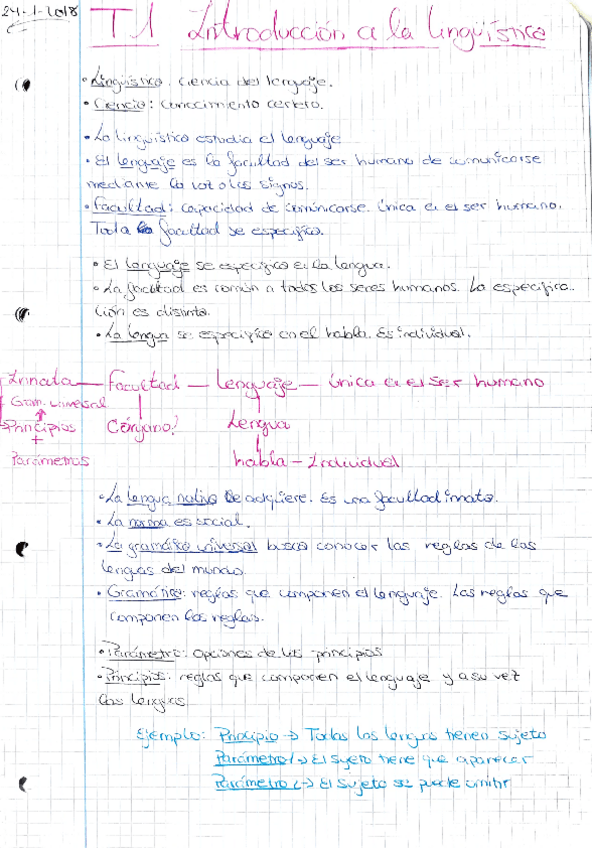 24-1-2018
T.1 Introducción a la lingüística
• Lingüística: ciencia del lenguaje.
• Ciencia: conocimiento certero.
• La lingüística estudia el lenguaje
• El lenguaje es la facultad del ser humano de comunicarse
mediante la voz o los signos.
• Facultad: capacidad de comunicarse. Única en el ser humano.
Toda la facultad se especifica.
• El lenguaje se especifica en la lengua.
• La facultad es común a todos los seres humanos. La especifica-
ción es distinta.
• La lengua se especifica en el habla. Es individual.
Innata — Facultad — Lenguaje — única en el ser humano
Gram. universal
Principios ¿órgano? Lengua
+
Parámetros habla - Individual
• La lengua nativa se adquiere. Es una facultad innata.
• La norma es social.
• La gramática universal busca conocer las reglas de las
lenguas del mundo.
• Gramática: reglas que componen el lenguaje. Las reglas que
componen las reglas.
• Parámetro: opciones de los principios
• Principios: reglas que componen el lenguaje y a su vez
las lenguas.
Ejemplo: Principio → Todas las lenguas tienen sujeto
Parámetro 1 → El sujeto tiene que aparecer
Parámetro 2 → El sujeto se puede omitir